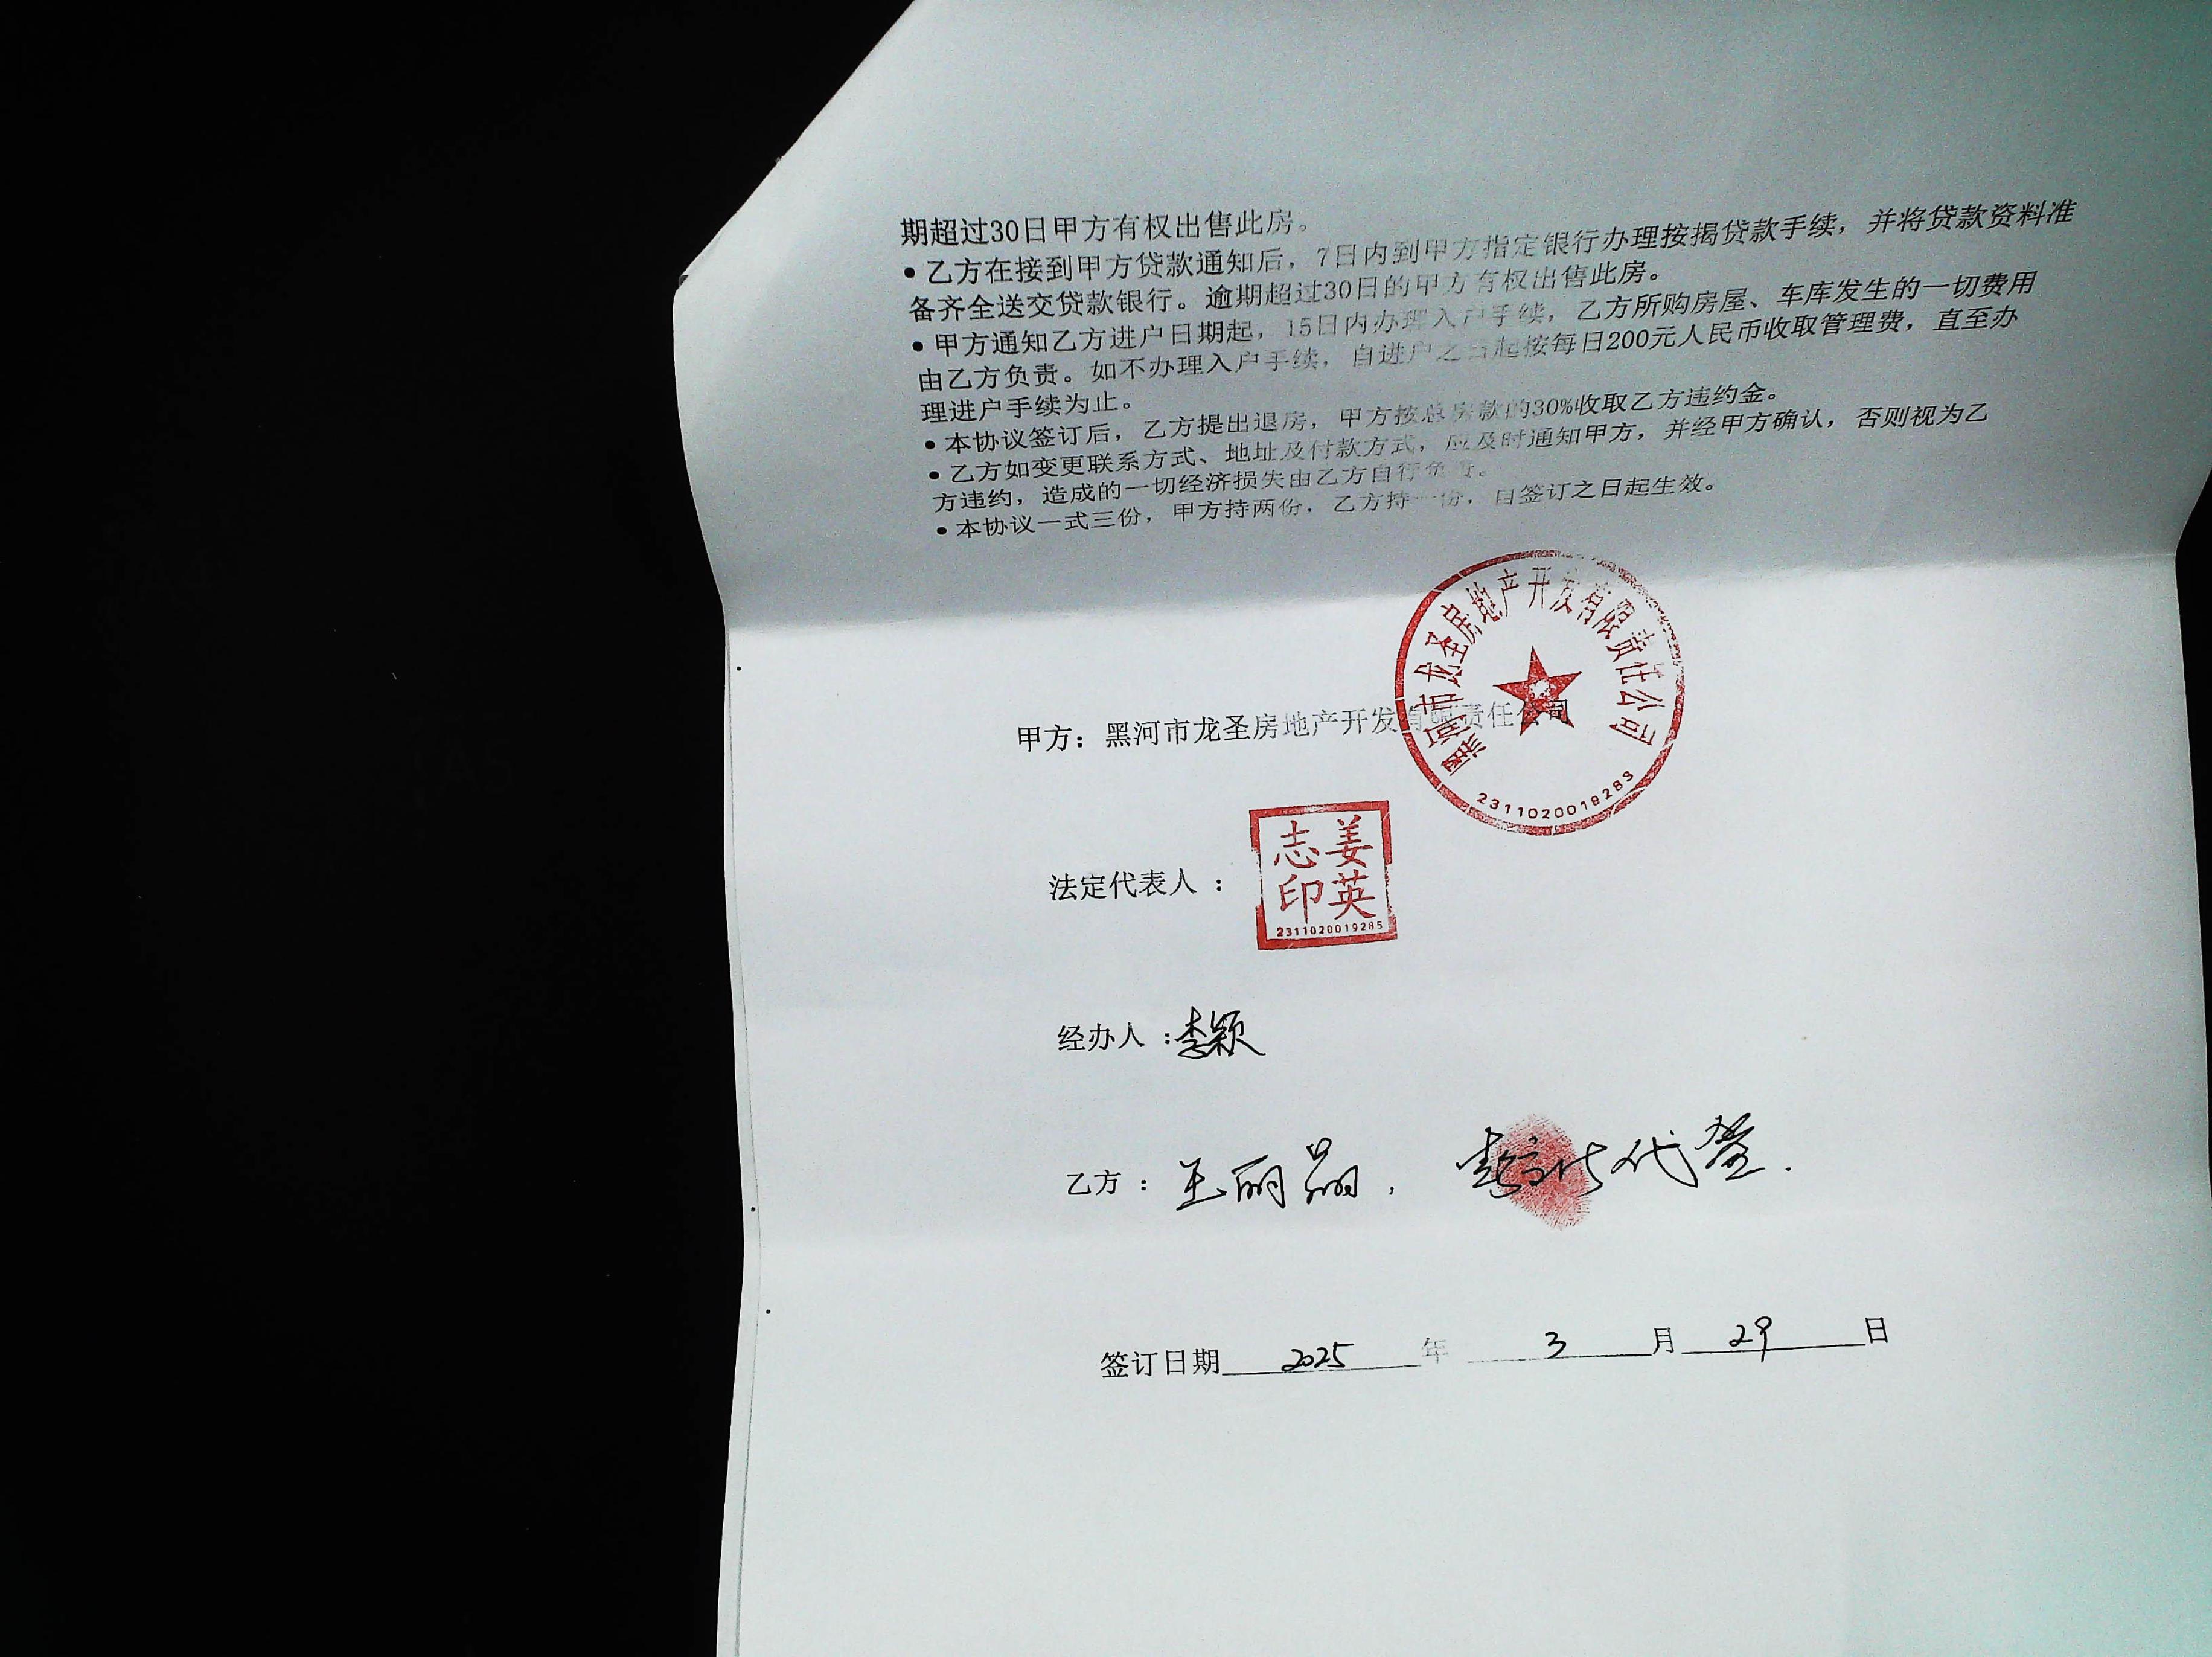 期超过30日甲方有权出售此房。
•乙方在接到甲方贷款通知后，7日内到甲方指定银行办理按揭贷款手续，并将贷款资料准
备齐全送交贷款银行。逾期超过30日的甲方有权出售此房。
•甲方通知乙方进户日期起，15日内办理入户手续，乙方所购房屋、车库发生的一切费用
由乙方负责。如不办理入户手续，自进户之日起按每日200元人民币收取管理费，直至办
理进户手续为止。
•本协议签订后，乙方提出退房，甲方按总房款的30%收取乙方违约金。
•乙方如变更联系方式、地址及付款方式，应及时通知甲方，并经甲方确认，否则视为乙
方违约，造成的一切经济损失由乙方自行负责。
•本协议一式三份，甲方持两份，乙方持一份，自签订之日起生效。
黑河市龙圣房地产开发有限责任公司
甲方：黑河市龙圣房地产开发有限责任公司
2311020019283
法定代表人：
姜英志印
2311020019285
经办人：李颖
乙方：王丽晶， 代签.
签订日期 2025 年 3 月 29 日